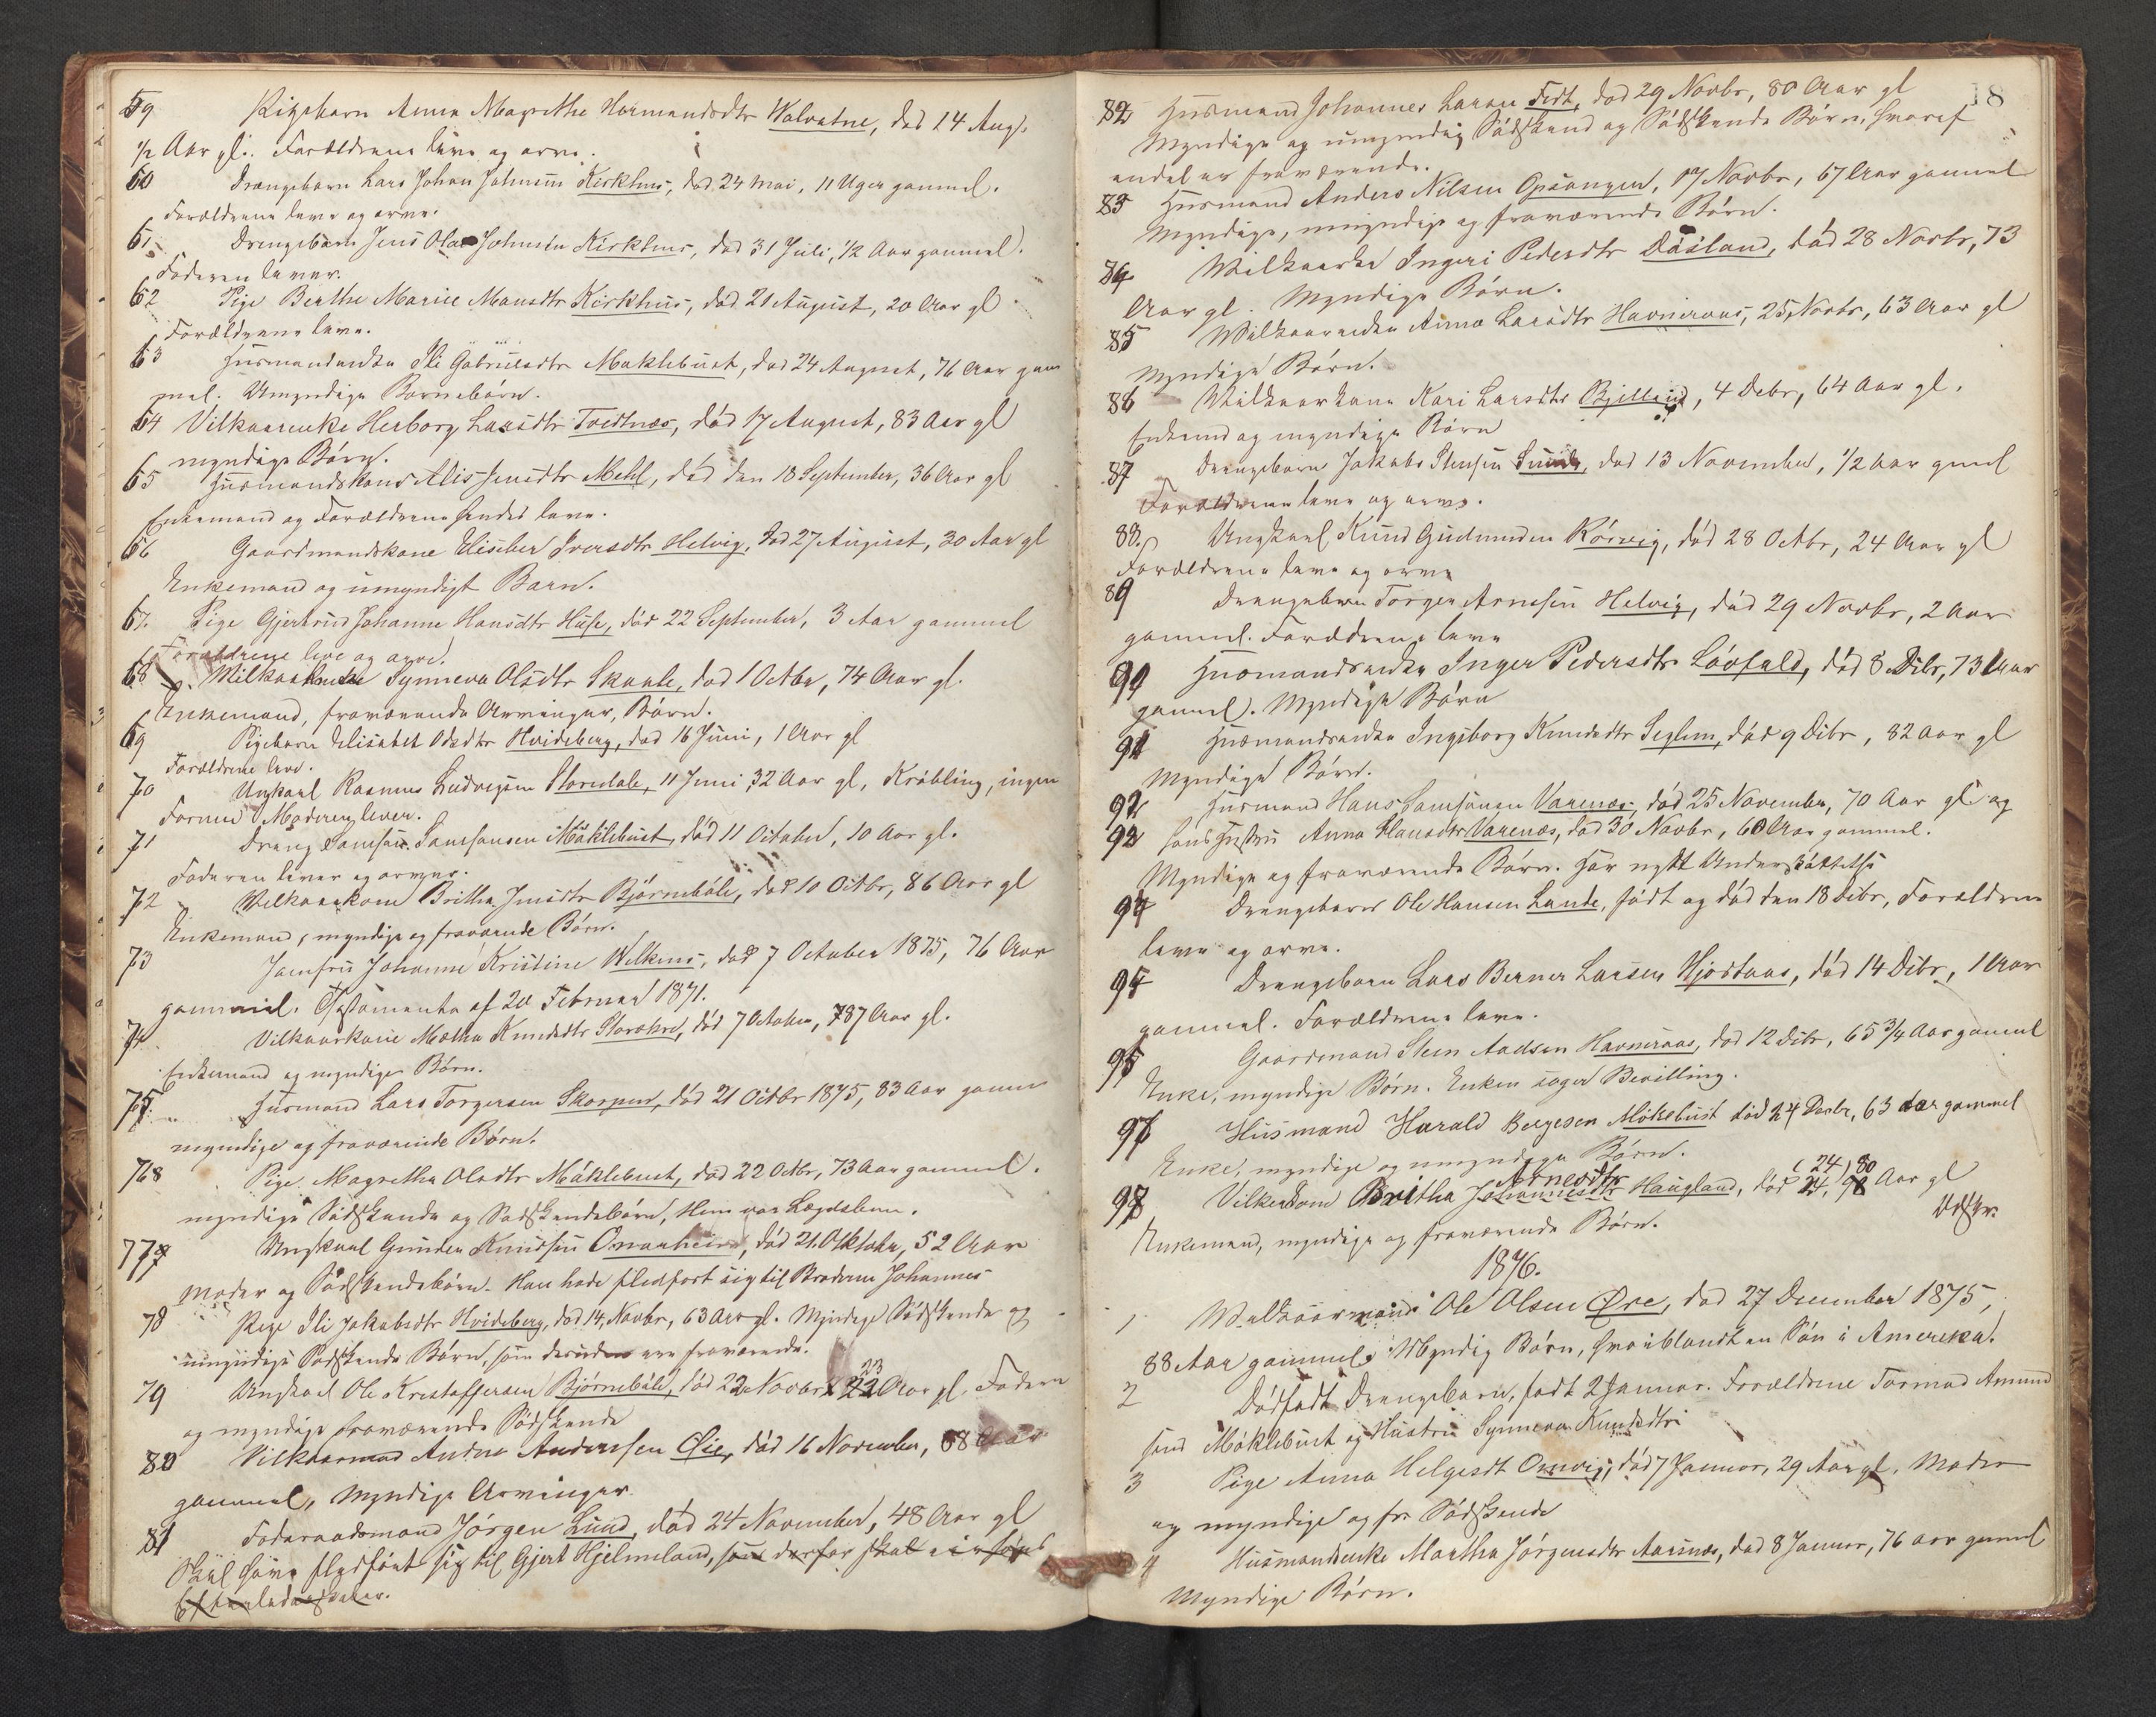 59 Pigebarn Anna Magrethe Hermandsdtr Valvatne, død 14 Aug.
1/2 Aar gl. Forældrene leve og arve.
60 Drengebarn Lars Johan Johnsen Kirkhus, død 24 Mai, 11 Uger gammel.
Forældrene leve og arve.
61 Drengebarn Jens Ola Johnsen Kirkhus, død 31 Juli, 1/2 Aar gammel.
Faderen lever.
62 Pige Berthe Marie Mansdtr Kirkhus, død 21 August, 20 Aar gl
Forældrene leve.
63 Husmandsenke Ili Gabrielsdtr Maklebust, død 24 August, 76 Aar gam
mel. Umyndige Børnebørn.
64 Vilkaarenke Herborg Larsdtr Tvedtnæs, død 17 August, 83 Aar gl
myndige Børn.
65 Husmandskone Alis Jensdtr Mehl, død den 18 September, 36 Aar gl
Enkemand og Forældrene hendes leve.
66 Gaardmandskone Elisebet Iversdtr Helvig, død 27 August, 30 Aar gl
Enkemand og umyndigt Barn.
67. Pige Gjertrud Johanne Hansdtr Huse, død 22 September, 3 Aar gammel
Forældrene leve og arve.
68 Synneva Olsdtr Skaale, død 1 Octbr, 74 Aar gl.
Enkemand, fraværende Arvinger, Børn.
69 Pigebarn Elisabet Odsdtr Hvideberg, død 16 Juni, 1 Aar gl
Forældrene leve.
70 Ungkarl Rasmus Ludvigsen Storedale, 11 Juni, 32 Aar gl, Krøbling, ingen
Formue Moderen lever.
71 Dreng Samson Samsonsen Møklebust, død 11 October, 10 Aar gl.
Faderen lever og arver.
72 Vilkaarkone Britha Jensdtr Bjørnebøle, død 10 Octbr, 86 Aar gl
Enkemand, myndige og fraværende Børn.
73 Jomfru Johanne Kristine Wilkens, død 7 October 1875, 76 Aar
gammel. Testamente af 20 Februar 1871.
74 Vilkaarkone Martha Knudsdtr, død 7 October, 87 Aar gl.
Enkemand og myndige Børn.
75. Husmand Lars Torgersen Skorpen, død 21 Octbr 1875, 83 Aar gamm
myndige og fraværende Børn.
76 Pige Magretha Olsdtr Møklebust, død 22 Octbr, 73 Aar gammel.
myndige Sødskende og Sødskendebørn, Hun var Lægdslem.
77 Ungkarl Gunder Knudsen Omarheim, død 21. Oktober, 52 Aar
Moder og Sødskendebørn. Han hade fledført sig til Broderen Johannes
78 Pige Ili Jakobsdtr Hvideberg, død 14. Novbr, 63 Aar gl. Myndige Sødskende og
umyndige Sødskende Børn, som desuden ere fraværende.
79 Ungkarl Ole Kristoffersen Bjørnebøle, død 22 Novbr 23 Aar gl. Fader
og myndige fraværende Sødskende
80 Vilkaarmand Anders Anderssen Øie, død 16 November, 68 Aar
gammel, Myndige Arvinger
81 Føderaadsmand Jørgen Lund, død 24 November, 48 Aar gl
Skal have fledført sig til Gjert Hjelmeland, som derfor skal
18
82 Husmand Johannes Larsen Tvedt, død 29 Novbr, 80 Aar gl
Myndige og umyndig Sødskend og Sødskende Børn, hvoraf
endel er fraværende.
83 Husmand Anders Nilsen Opsanger, 17 Novbr, 67 Aar gammel
Myndige, umyndige og fraværende Børn.
84 Vilkaarke Ingeri Pedersdtr Døsland, død 28 Novbr, 73
Aar gl. Myndige Børn.
85 Vilkaarenke Anna Larsdtr Havneraas, 25 Novbr, 63 Aar gl
Myndige Børn.
86 Vilkaarkone Kari Larsdtr Bjelland, 4 Debr, 64 Aar gl.
Enkemd og myndige Børn
87 Drengebarn Jakob Stensen Sunde, død 13 November, 1/2 Aar gmel
Forældrene leve og arve.
88. Ungkarl Knud Gudmunden Rørvig, død 28 Octbr, 24 Aar gl
Forældrene leve og arve
89 Drengebarn Torger Arnesen Helvig, død 29 Novbr, 2 Aar
gammel. Forældrene leve
90 Husmandsenke Inger Pedersdtr Løvfald, død 8 Debr, 73 Aar
gammel. Myndige Børn
91 Husmandsenke Ingeborg Knudsdtr Seglem, død 9 Debr, 82 Aar gl
Myndige Børn.
92 Husmand Hans Samsonsen Varenæs, død 25 November, 70 Aar gl og
93 hans Hustru Anna Hansdtr Varenæs, død 30 Novbr, 60 Aar gammel.
Myndige og fraværende Børn. Har nydt Understøttelse
94 Drengebarn Ole Hansen Lande, født og død den 18 Debr, Forældrene
leve og arve.
95 Drengebarn Lars Berner Larsen Hjortaas, død 14 Debr, 1 Aar
gammel. Forældrene leve.
96 Gaardmand Sten Aadsen Havneraas, død 12 Debr, 65 3/4 Aar gammel
Enke, myndige Børn. Enken søger Bevilling.
97 Husmand Harald Bergesen Møklebust død 24 Decbr, 63 Aar gammel
Enke, myndige og umyndige Børn.
98 Vilkaarkone Britha Johannesdtr Arnesdtr Haugland, død 24, 80 Aar gl
Enkemand, myndige og fraværende Børn.
1876.
1 Vilkaarmand Ole Olsen Øre, død 27 December 1875,
88 Aar gammel. Myndig Børn, hvoriblandt en Søn i Amerika.
2 Dødfødt Drengebarn, født 2 Januar. Forældrene Tormod Amund
sens Møklebust og Hustru Synneva Knudsdtr
3 Pige Anna Helgesdt Omvig, død 7 Januar, 29 Aar gl. Moder
og myndige og fr Sødskende
4 Husmandsenke Martha Jørgensdtr Aarsnæs, død 8 Januar, 76 aar gamml
Myndige Børn.